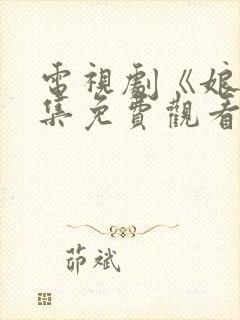 電視劇《娘
集免費觀看
茆斌